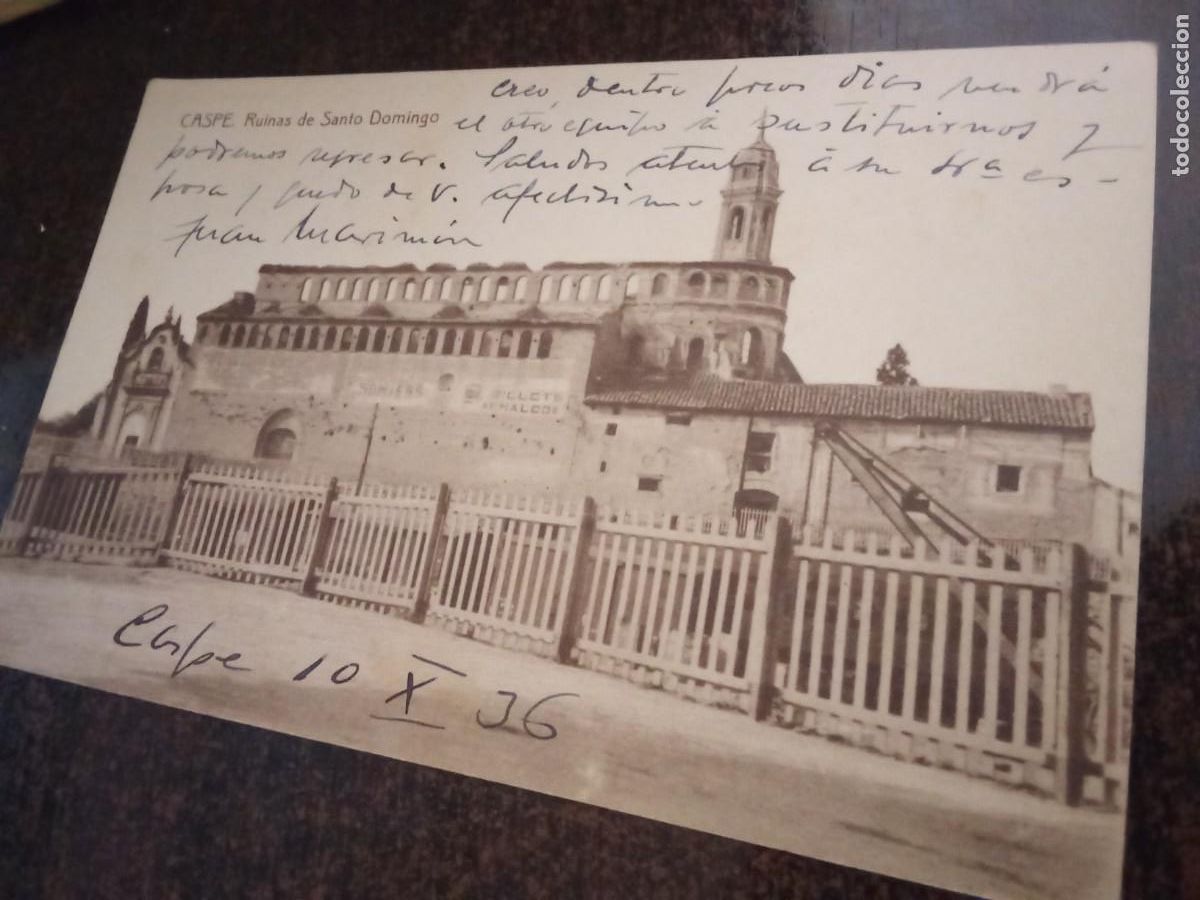 creo, dentro pocos dias vendrá
CASPE Ruinas de Santo Domingo
el otro equipo á sustituirnos y
podremos regresar. Saludos atentos á su Srª es-
posa y quedo de V. afectisimo
Juan Marimón
Caspe 10 X 36
todocoleccion